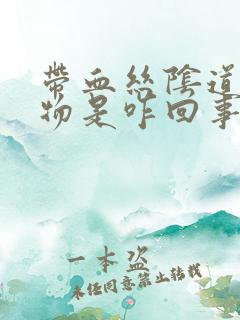 带血丝阴道
物是咋回事
一本盗
未经同意禁止转载